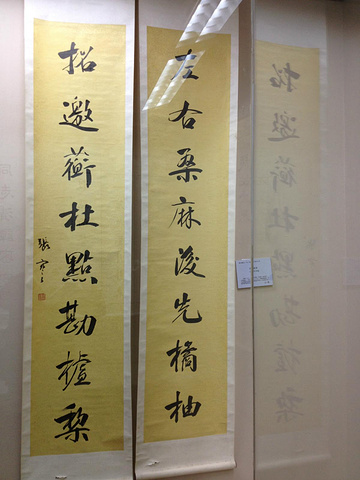 左右桑麻後先橘柚
招邀蘅杜點勘樝棃
張